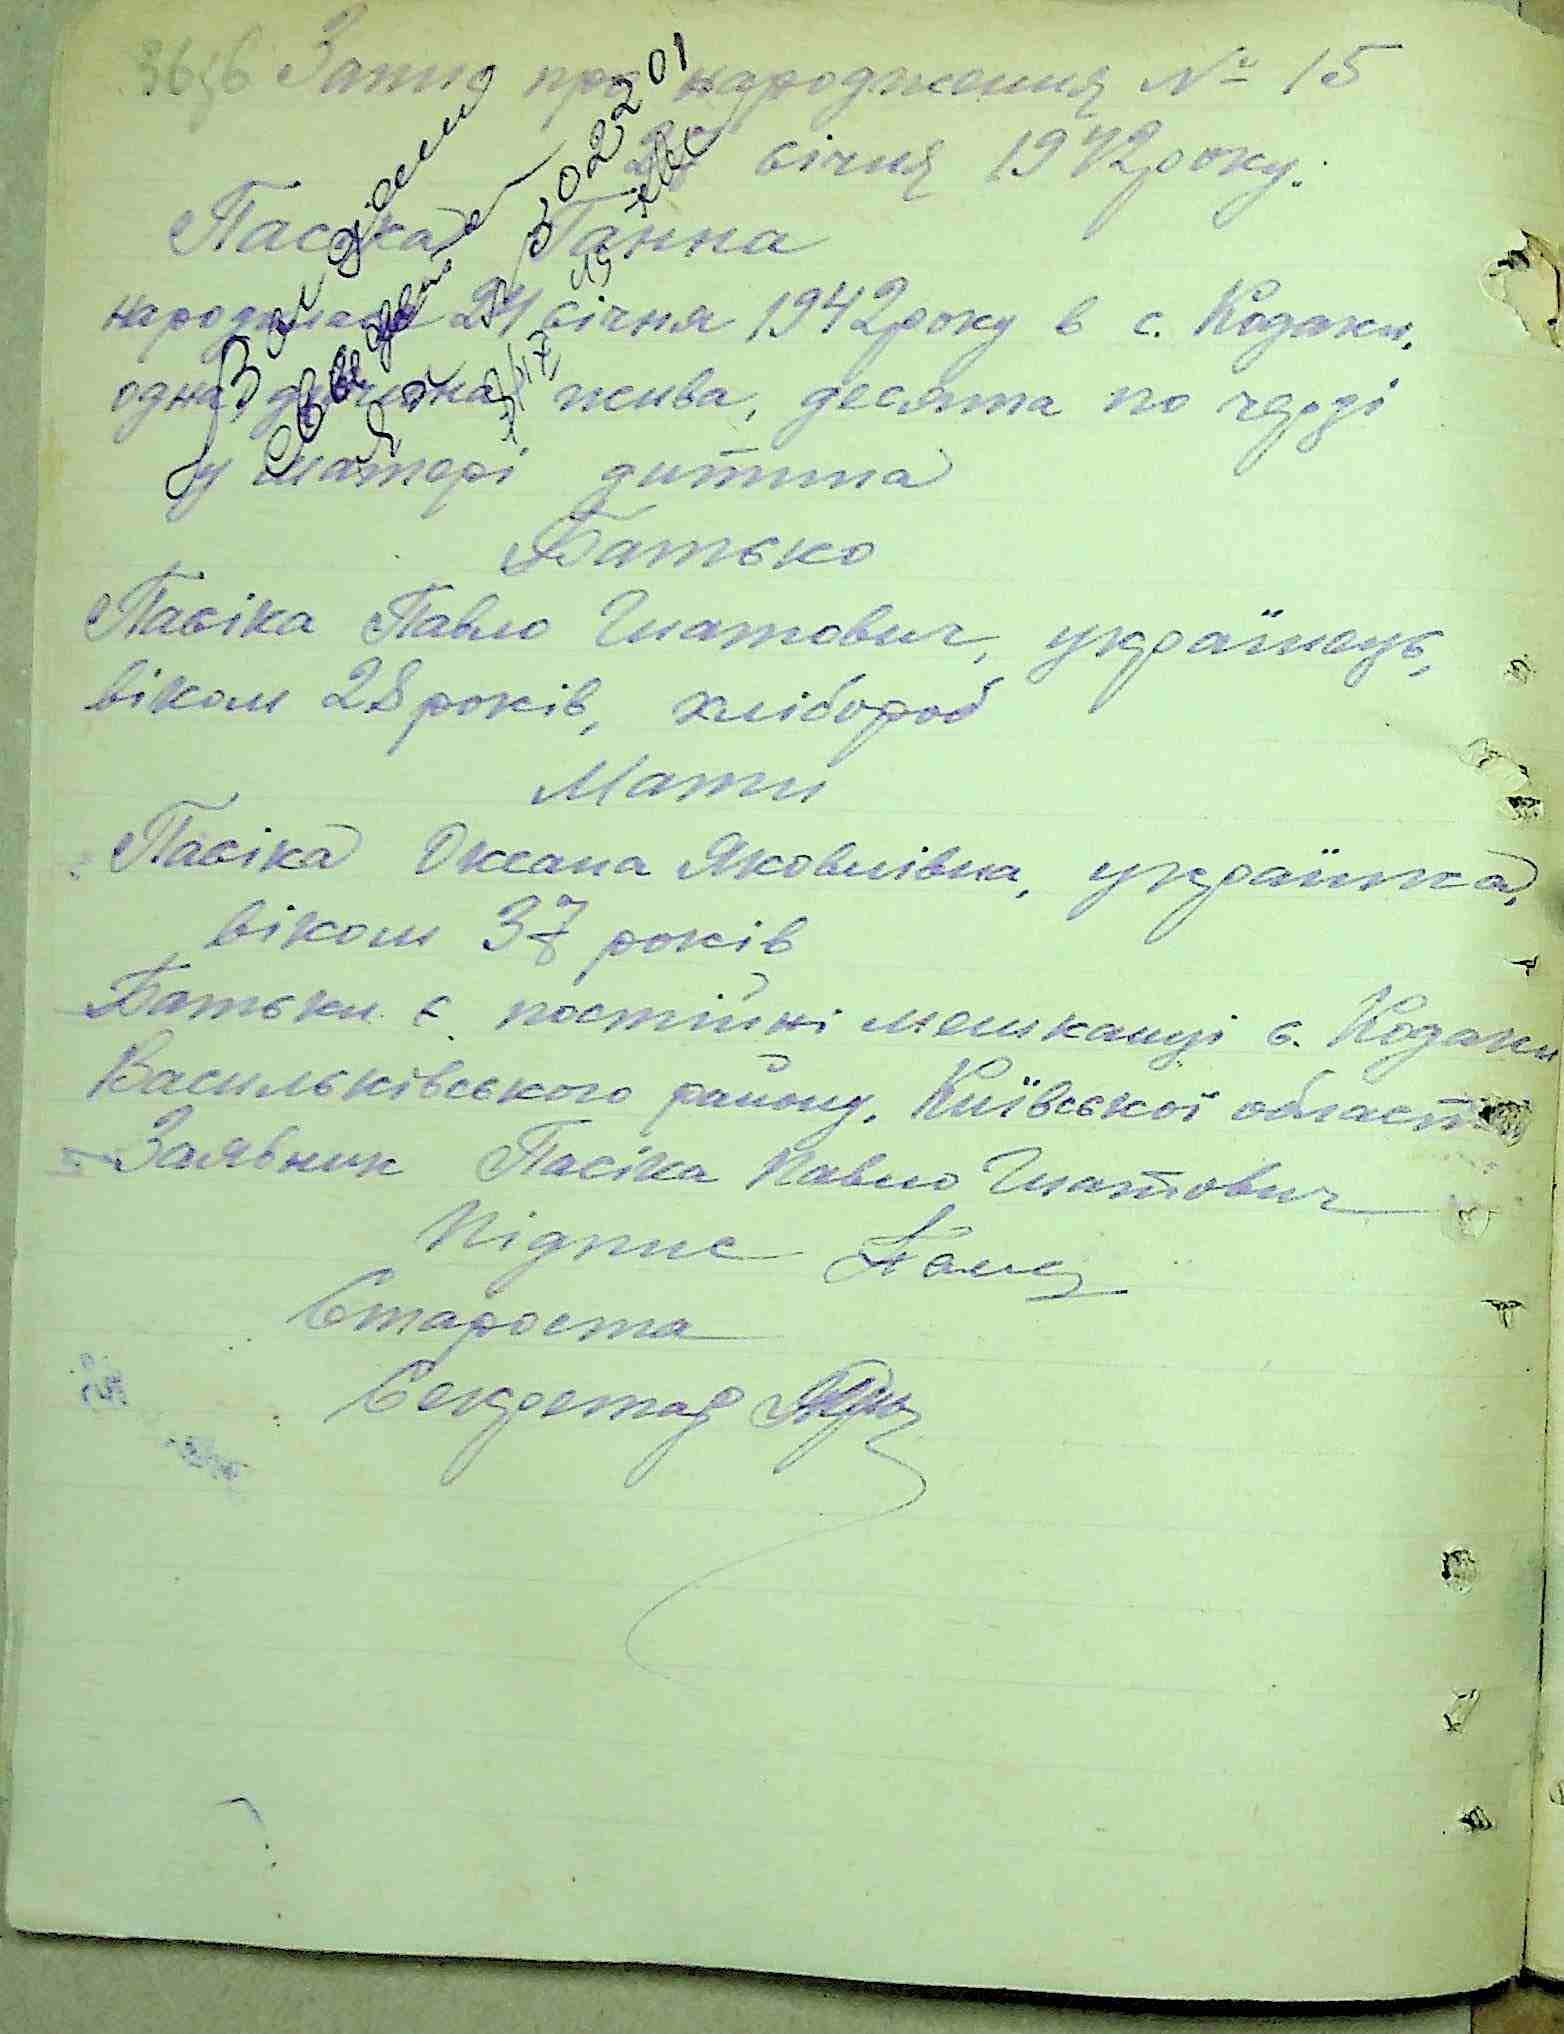 Запис про народження № 15
січня 1942 року.
Пасіка Ганна
народилась 24 січня 1942 року в с. Кодаки,
одна дитина жива, десята по черзі
у матері дитина
Батько
Пасіка Павло Гнатович, українець,
віком 28 років, хлібороб
Мати
Пасіка Оксана Яковлівна, українка,
віком 37 років
Батьки є постійні мешканці с. Кодаки
Васильківського району, Київської област
Заявник Пасіка Павло Гнатович
Підпис
Староста
Секретар